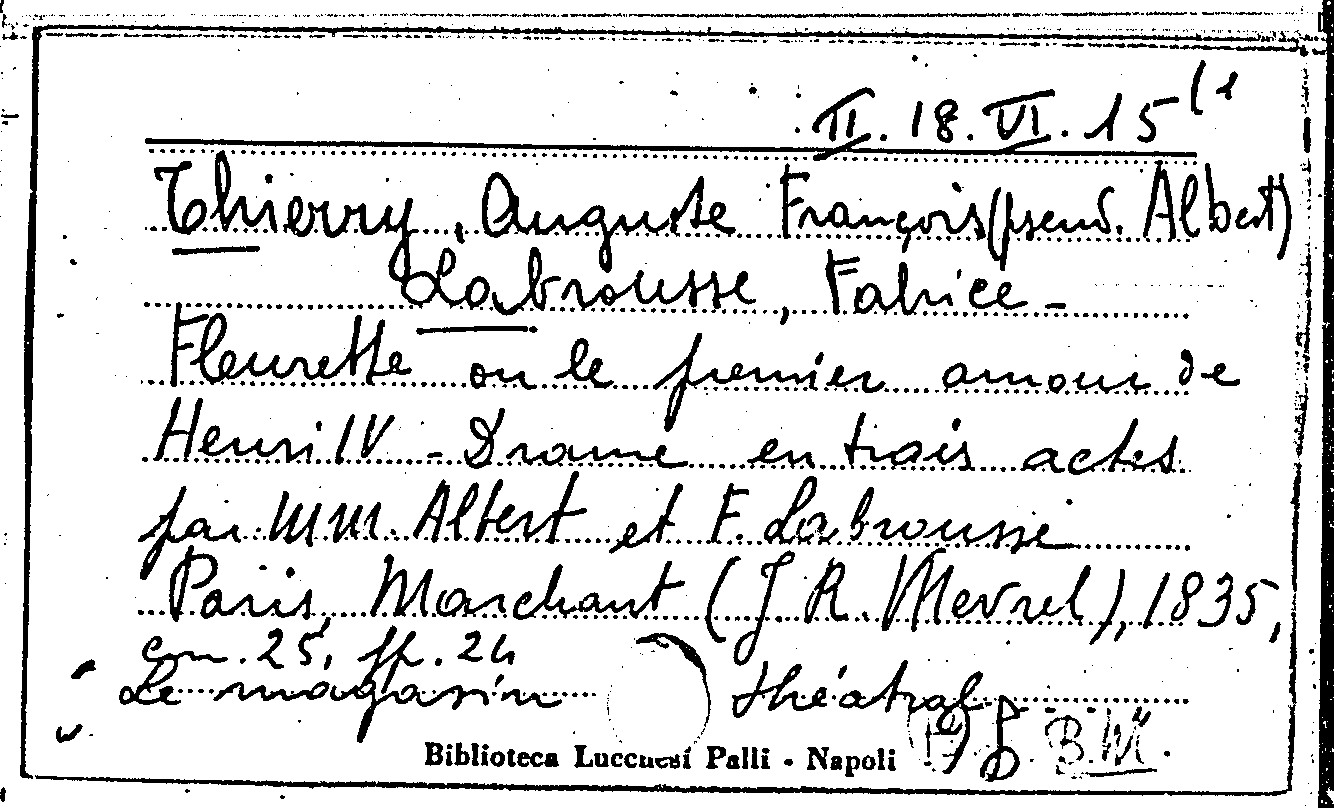 II. 18. VI. 15 (1
Thierry, Auguste François (pseud. Albert)
Labrousse, Fabrice -
Fleurette ou le premier amour de
Henri IV - Drame en trois actes
par MM. Albert et F. Labrousse
Paris, Marchant (J. R. Mevrel), 1835,
cm. 25, pp. 24
Le magasin théâtral
Biblioteca Lucchesi Palli - Napoli
B. M.